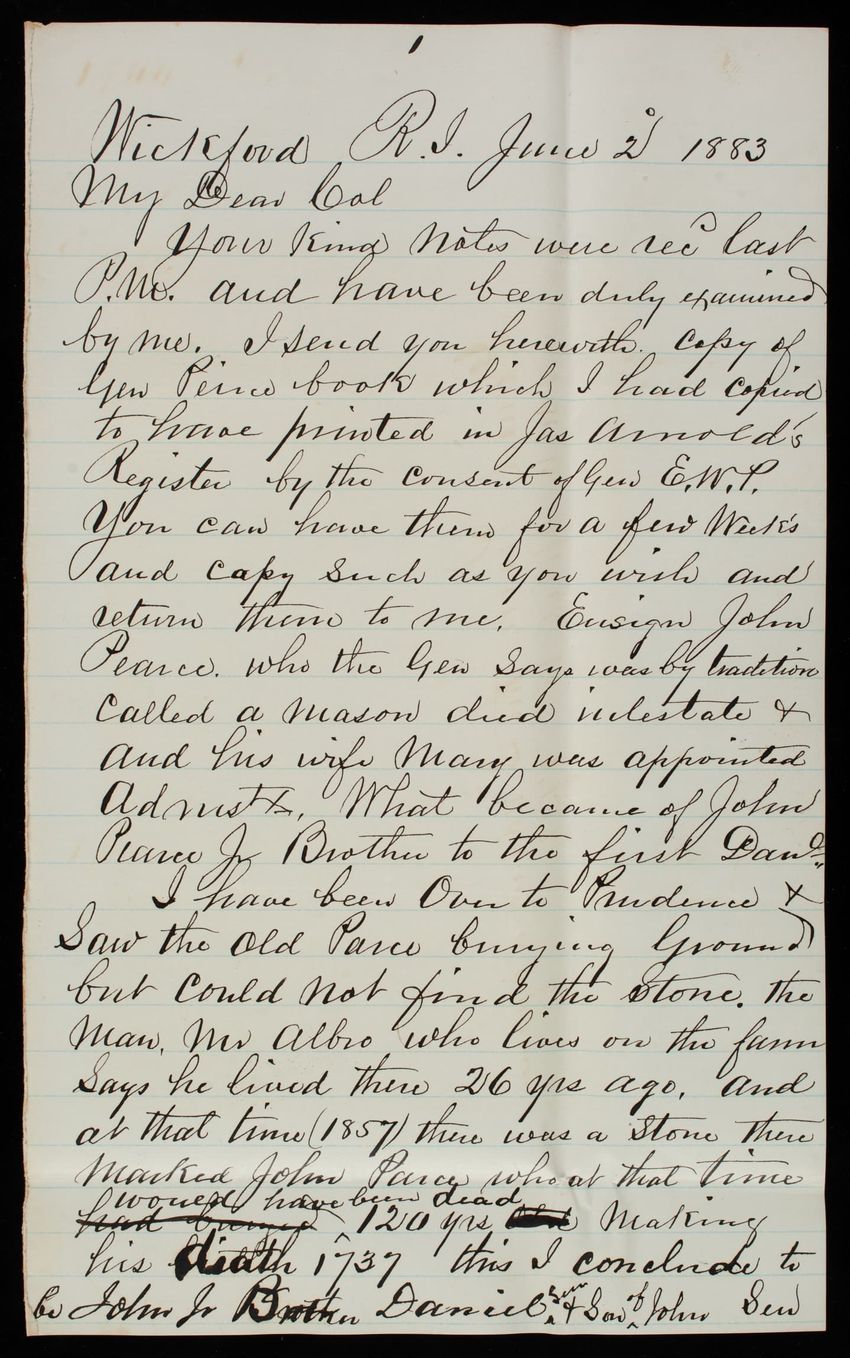 1
Wickford R.I. June 2d 1883
My Dear Col
Your kind notes were recd last
P.M. and have been duly examined
by me. I send you herewith copy of
Gen Peirce book which I had copied
to have printed in Jas Arnold's
Register by the consent of Gen E.W.P.
You can have them for a few Week's
and copy such as you wish and
return them to me. Ensign John
Pearce. who the Gen says was by tradition
called a mason died intestate &
and his wife Mary was appointed
Admstx. What became of John
Pearce Jr Brother to the first Danl
I have been Over to Prudence &
Saw the Old Parce burying Ground
but could not find the stone. the
Man, Mr Albro who lives on the farm
Says he lived there 26 yrs ago, and
at that time (1857) there was a Stone there
Marked John Parce who at that time
would have been dead
had 120 yrs Making
his death 1737 this I conclude to
be John Jr Brother Daniel Sen & Son of John Sen